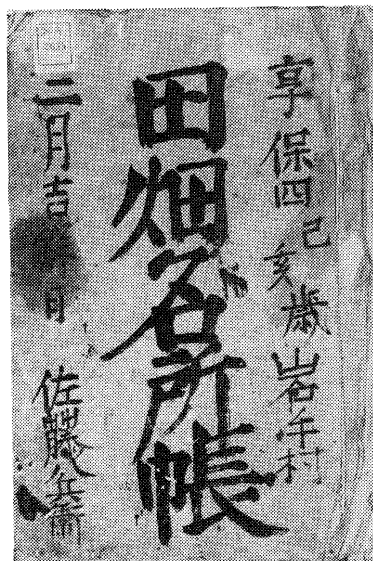 享保四己亥歳 岩手村
田畑名所帳
二月吉日 佐藤兵衛